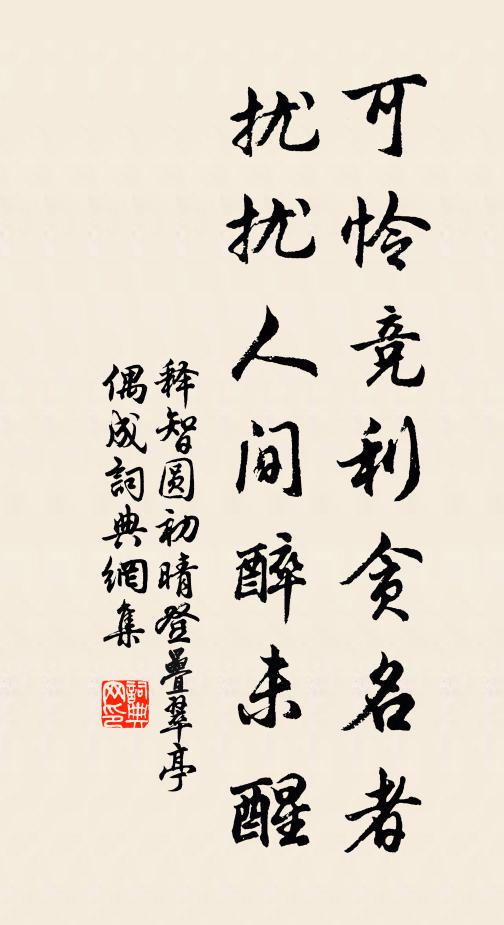 可怜竞利贪名者
扰扰人间醉未醒
释智圆初晴登叠翠亭
偶成詞典網集
詞典
网印